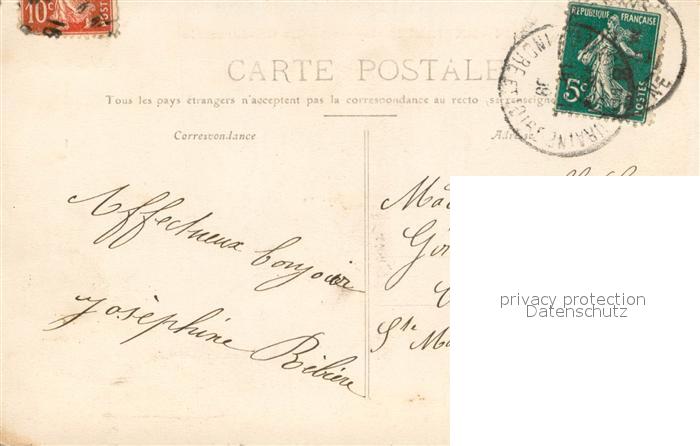 10c
POSTES
REPUBLIQUE FRANÇAISE
5c
POSTES
INDRE ET
CARTE POSTALE
Tous les pays étrangers n'acceptent pas la correspondance au recto
Correspondance
Adresse
Affectueux bonjour
Josèphine
S^te M
privacy protection
Datenschutz